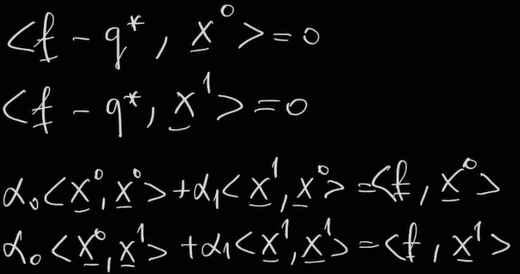 <f - q*, x⁰> = 0
<f - q*, x¹> = 0
α₀<x⁰, x⁰> + α₁<x¹, x⁰> = <f, x⁰>
α₀<x⁰, x¹> + α₁<x¹, x¹> = <f, x¹>